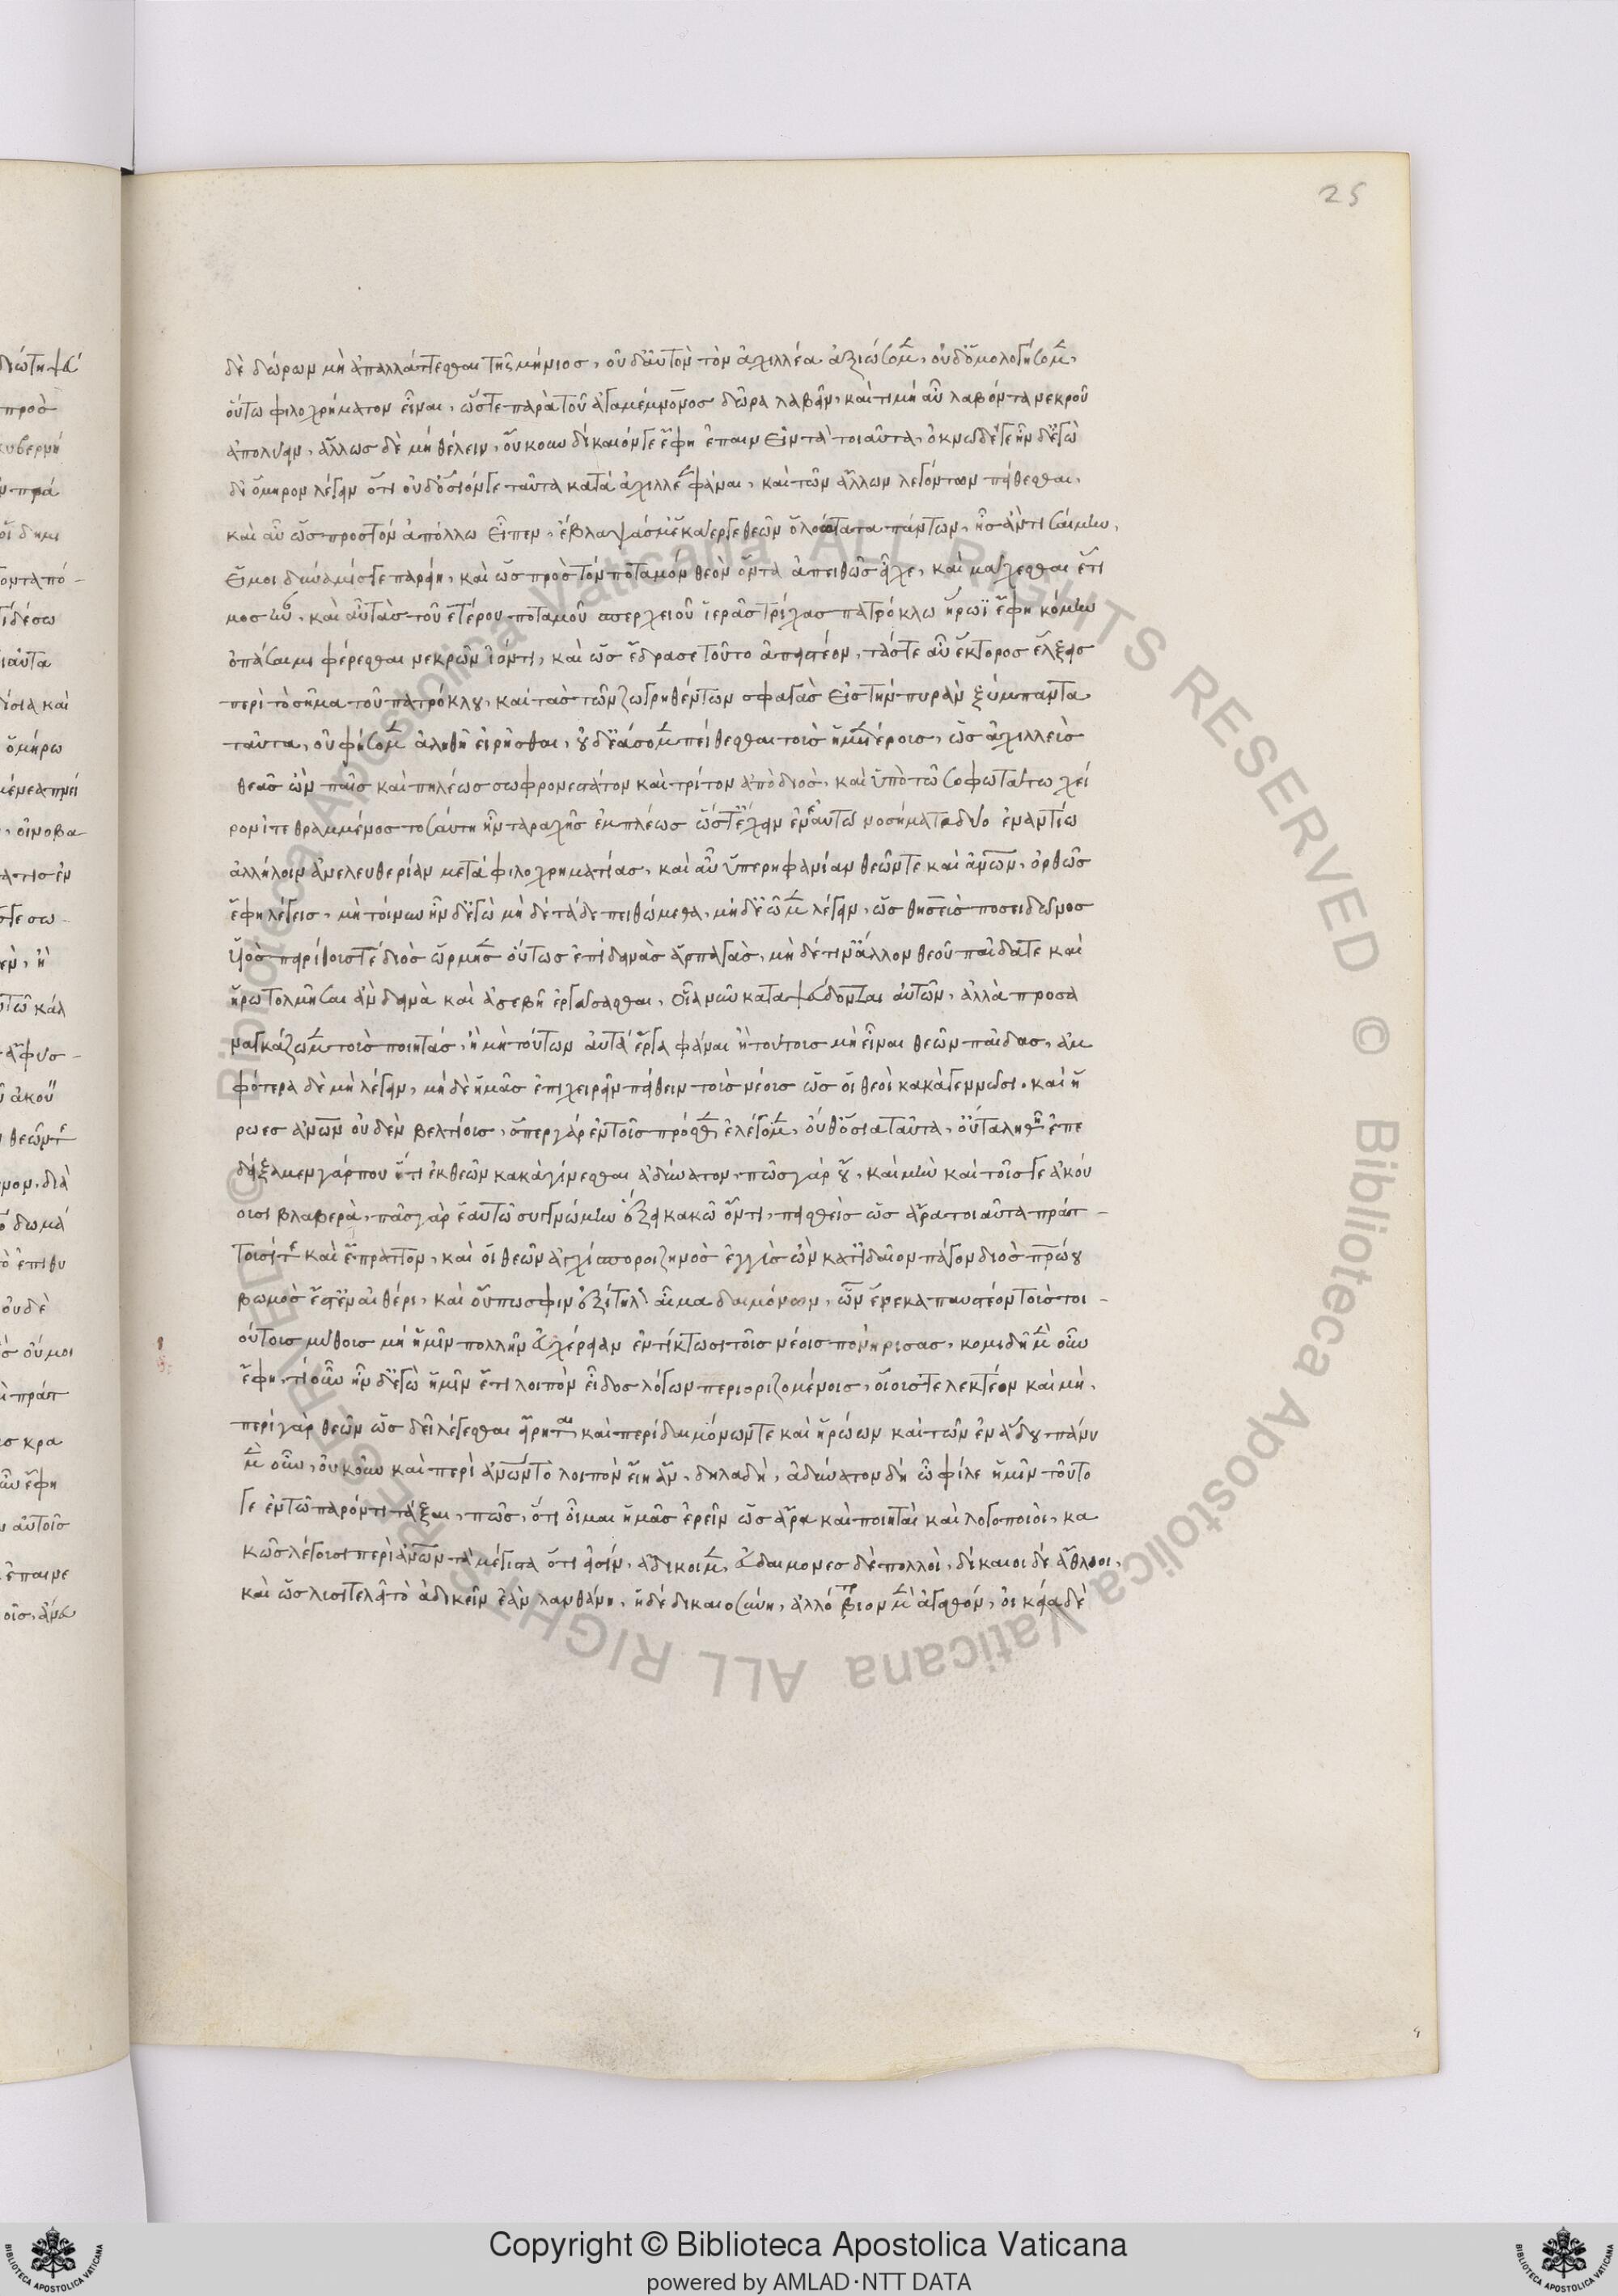 25
δὲ δώρων μὴ ἀπαλλάττεσθαι τῆς μήνιος, οὐδ' αὐτὸν τὸν ἀχιλλέα ἀξιώσομ, οὐδ' ὁμολογήσομ,
οὕτω φιλοχρήματον εἶναι, ὥστε παρὰ τοῦ ἀγαμέμνονος δῶρα λαβεῖν, καὶ τιμὴ αὖ λαβόντα νεκροῦ
ἀπολύειν, ἄλλως δὲ μὴ θέλειν, οὔκουν δίκαιόν γε ἔφη ἐπαινεῖν τὰ τοιαῦτα, ὀκνῶ δέ γε ἦν δ' ἐγὼ
δι' ὅμηρον λέγειν ὅτι οὐδ' ὅσιόν γε ταῦτα κατὰ ἀχιλλέ φάναι, καὶ τῶν ἄλλων λεγόντων πείθεσθαι,
καὶ αὖ ὡς προς τὸν ἀπόλλω εἶπεν, ἔβλαψάς μ' ἑκάεργε θεῶν ὀλοώτατα πάντων, ἦ σ' ἂν τισαίμην,
εἴ μοι δύναμίς γε παρείη, καὶ ὡς πρὸς τὸν ποταμὸν θεὸν ὄντα ἀπειθῶς εἶχε, καὶ μάχεσθαι ἕτι
μος ὢν, καὶ αὖ τὰς τοῦ ἑτέρου ποταμοῦ σπερχειοῦ ἱερὰς τρίχας πατρόκλω ἥρωϊ ἔφη κόμην
ὀπάσαιμι φέρεσθαι νεκρῶ ὄντι, καὶ ὡς ἔδρασε τοῦτο οὐ πειστέον, τάς τε αὖ ἕκτορος ἕλξεις
περὶ τὸ σῆμα τοῦ πατρόκλου, καὶ τὰς τῶν ζωγρηθέντων σφαγὰς εἰς τὴν πυρὰν ξύμπαντα
ταῦτα, οὐ φήσομ ἀληθῆ εἰρῆσθαι, οὐδ' ἐάσομ πείθεσθαι τοὺς ἡμετέρους, ὡς ἀχιλλεὺς
θεᾶς ὢν παῖς καὶ πηλέως σωφρονεστάτου καὶ τρίτου ἀπὸ διὸς, καὶ ὑπὸ τῶ σοφωτάτω χεί
ρωνι τεθραμμένος τοσαύτη ἦν ταραχῆς ἔκπλέως ὥστ' ἔχειν ἐν ἑαυτῶ νοσήματε δύο ἐναντίω
ἀλλήλοιν ἀνελευθερίαν μετὰ φιλοχρηματίας, καὶ αὖ ὑπερηφανίαν θεῶν τε καὶ ἀνων, ὀρθῶς
ἔφη λέγεις, μὴ τοίνυν ἦν δ' ἐγὼ μὴ δὲ τάδε πειθώμεθα, μὴ δ' ἐῶμ λέγειν, ὡς θησεὺς ποσειδῶνος
ὑὸς πειρίθους τε διὸς ὥρμησ οὕτως ἐπὶ δεινὰς ἁρπαγὰς, μὴ δέ τιν' ἄλλον θεοῦ παῖδά τε καὶ
ἥρω τολμῆσαι ἂν δεινὰ καὶ ἀσεβῆ ἐργάσασθαι, οἷα νῦν καταψεύδονται αὐτῶν, ἀλλὰ προσα
ναγκάζωμ τοὺς ποιητὰς, ἢ μὴ τούτων αὐτὰ ἔργα φάναι ἢ τούτους μὴ εἶναι θεῶν παῖδας, ἀμ
φότερα δὲ μὴ λέγειν, μὴ δὲ ἡμᾶς ἐπιχειρεῖν πείθειν τοὺς νέους ὡς οἱ θεοὶ κακὰ γεννῶσι, καὶ ἥ
ρωες ἀνων οὐδὲν βελτίους, ὅπερ γὰρ ἐν τοῖς πρόσθ ἐλέγομ, οὐθ' ὅσια ταῦτα, οὔτ' ἀληθῆ ἐπε
δείξαμεν γάρ που ὅτι ἐκ θεῶν κακὰ γίνεσθαι ἀδύνατον, πῶς γὰρ οὔ, καὶ μὴν καὶ τοῖς γε ἀκού
ουσι βλαβερὰ, πᾶς γὰρ ἑαυτῶ συγγνώμην ἕξει κακῶ ὄντι, πεισθεὶς ὡς ἄρα τοιαῦτα πράτ-
τουσί τε καὶ ἔπραττον, καὶ οἱ θεῶν ἀγχίσποροι ζηνὸς ἐγγὺς ὧν κατ' ἰδαῖον πάγον διὸς πρώου
βωμὸς ἔστ' ἐν αἰθέρι, καὶ οὔπω σφιν ἐξίτηλ αἷμα δαιμόνων, ὧν ἕνεκα παυστέον τοὺς τοι-
ούτους μύθους μὴ ἡμῖν πολλὴν εὐχέρειαν ἐντίκτωσι τοῖς νέοις πονηρίας, κομιδῆ μ οὖν
ἔφη, τί οὖν ἦν δ' ἐγὼ ἡμῖν ἔτι λοιπὸν εἶδος λόγων περιοριζομένοις, οἵους τε λεκτέον καὶ μὴ,
περὶ γὰρ θεῶν ὡς δεῖ λέγεσθαι εἴρηται καὶ περὶ δαιμόνων τε καὶ ἡρώων καὶ τῶν ἐν ἅδου, πάνυ
μ οὖν, οὐκοῦν καὶ περὶ ἀνων τὸ λοιπὸν εἴη ἂν, δηλαδὴ, ἀδύνατον δὴ ὦ φίλε ἡμῖν τοῦτό
γε ἐν τῶ παρόντι τάξαι, πῶς, ὅτι οἶμαι ἡμᾶς ἐρεῖν ὡς ἄρα καὶ ποιηταὶ καὶ λογοποιοὶ, κα
κῶς λέγουσι περὶ ἀνων τὰ μέγιστα ὅτι εἰσὶν, ἄδικοι μ, εὐδαίμονες δὲ πολλοὶ, δίκαιοι δὲ ἄθλιοι,
καὶ ὡς λυσιτελεῖ τὸ ἀδικεῖν ἐὰν λανθάνη, ἡ δὲ δικαιοσύνη, ἀλλότριον μ ἀγαθὸν, οἰκεία δὲ
Copyright © Biblioteca Apostolica Vaticana
powered by AMLAD·NTT DATA